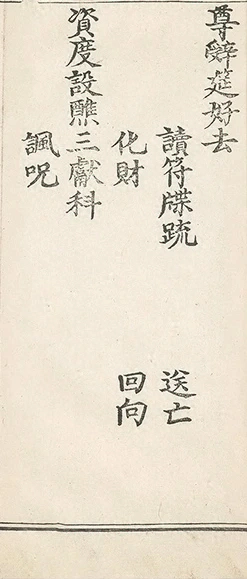 尊辭筵好去
讀符牒䟽 送亡
化財 回向
資度設醮三獻科
諷呪